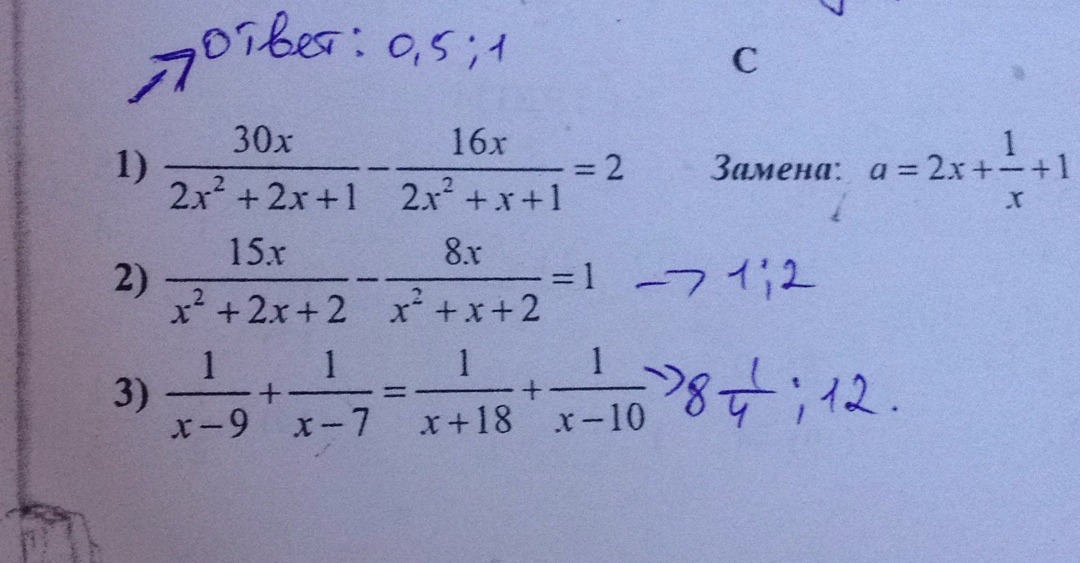 ответ: 0,5; 1
C
1) \frac{30x}{2x^2+2x+1} - \frac{16x}{2x^2+x+1} = 2 Замена: a = 2x + \frac{1}{x} + 1
2) \frac{15x}{x^2+2x+2} - \frac{8x}{x^2+x+2} = 1 → 1; 2
3) \frac{1}{x-9} + \frac{1}{x-7} = \frac{1}{x+18} + \frac{1}{x-10} → 8 \frac{1}{4}; 12.